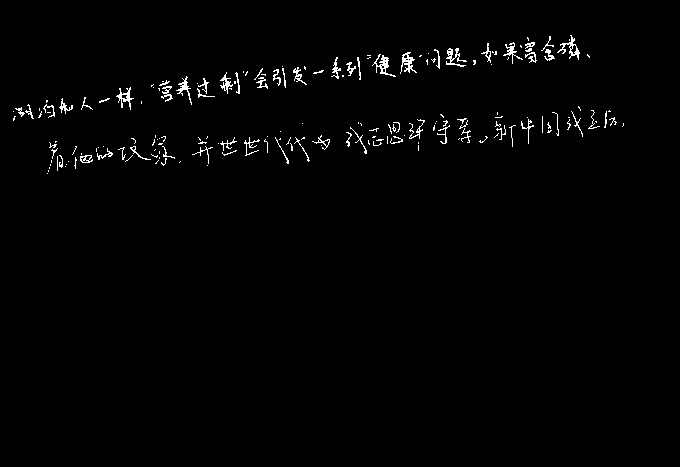 湖泊和人一样，“营养过剩”会引发一系列“健康”问题。如果富含磷、
着他的坟冢，并世世代代为戚志恩举守墓。新中国成立后，